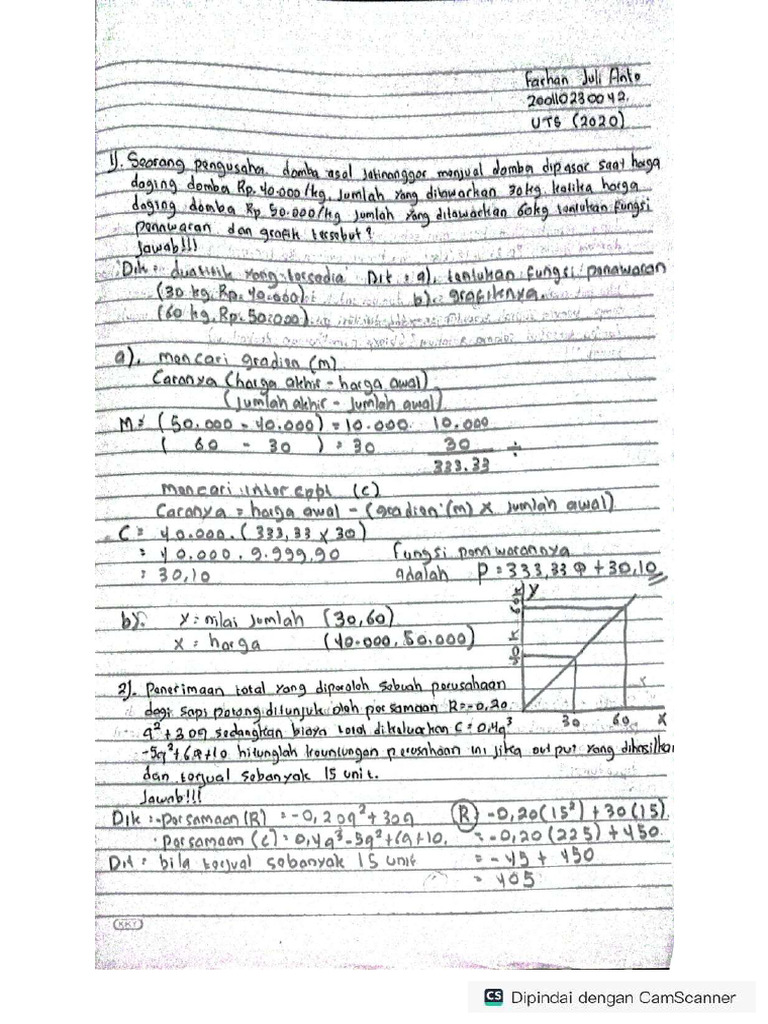 Farhan Juli Anto
200110230042.
UTS (2020)
1). Seorang pengusaha domba asal Jatinanggor menjual domba dipasar saat harga
daging domba Rp. 40.000/kg, Jumlah yang ditawarkan 30kg. ketika harga
daging domba Rp 50.000/kg Jumlah yang ditawarkan 60kg tentukan fungsi
penawaran dan grafik tersebut?
Jawab!!!
Dik : dua titik yang tersedia Dit : a). tentukan fungsi penawaran
(30 kg, Rp. 40.000) b). grafiknya.
(60 kg, Rp. 50.000)
a). mencari gradien (m)
Caranya (harga akhir - harga awal)
(Jumlah akhir - Jumlah awal)
M = (50.000 - 40.000) = 10.000 10.000
( 60 - 30 ) = 30 30 ÷
333.33
mencari intercept (c)
Caranya = harga awal - (gradien (m) x Jumlah awal)
C = 40.000. (333,33 x 30)
= 40.000. 9.999,90 fungsi penawarannya
= 30,10 adalah P = 333,33 Q + 30,10
b). y = nilai jumlah (30,60)
x = harga (40.000, 50.000)
y
60 k
30 k
30 60 x
2). Penerimaan total yang diperoleh sebuah perusahaan
dagi sapi potong ditunjuk oleh persamaan R=-0,20
q²+30q sedangkan biaya total dikeluarkan C = 0,4q³
-5q²+6q+10 hitunglah keuntungan perusahaan ini jika output yang dihasilkan
dan terjual sebanyak 15 unit.
Jawab!!!
Dik : - Persamaan (R) = -0,20q²+30q (R) = -0,20(15²) + 30(15).
· Persamaan (C) = 0,4q³-5q²+6q+10. = -0,20 (225) + 450.
Dit : bila terjual sebanyak 15 unit = -45 + 450
= 405
KKY
CS Dipindai dengan CamScanner